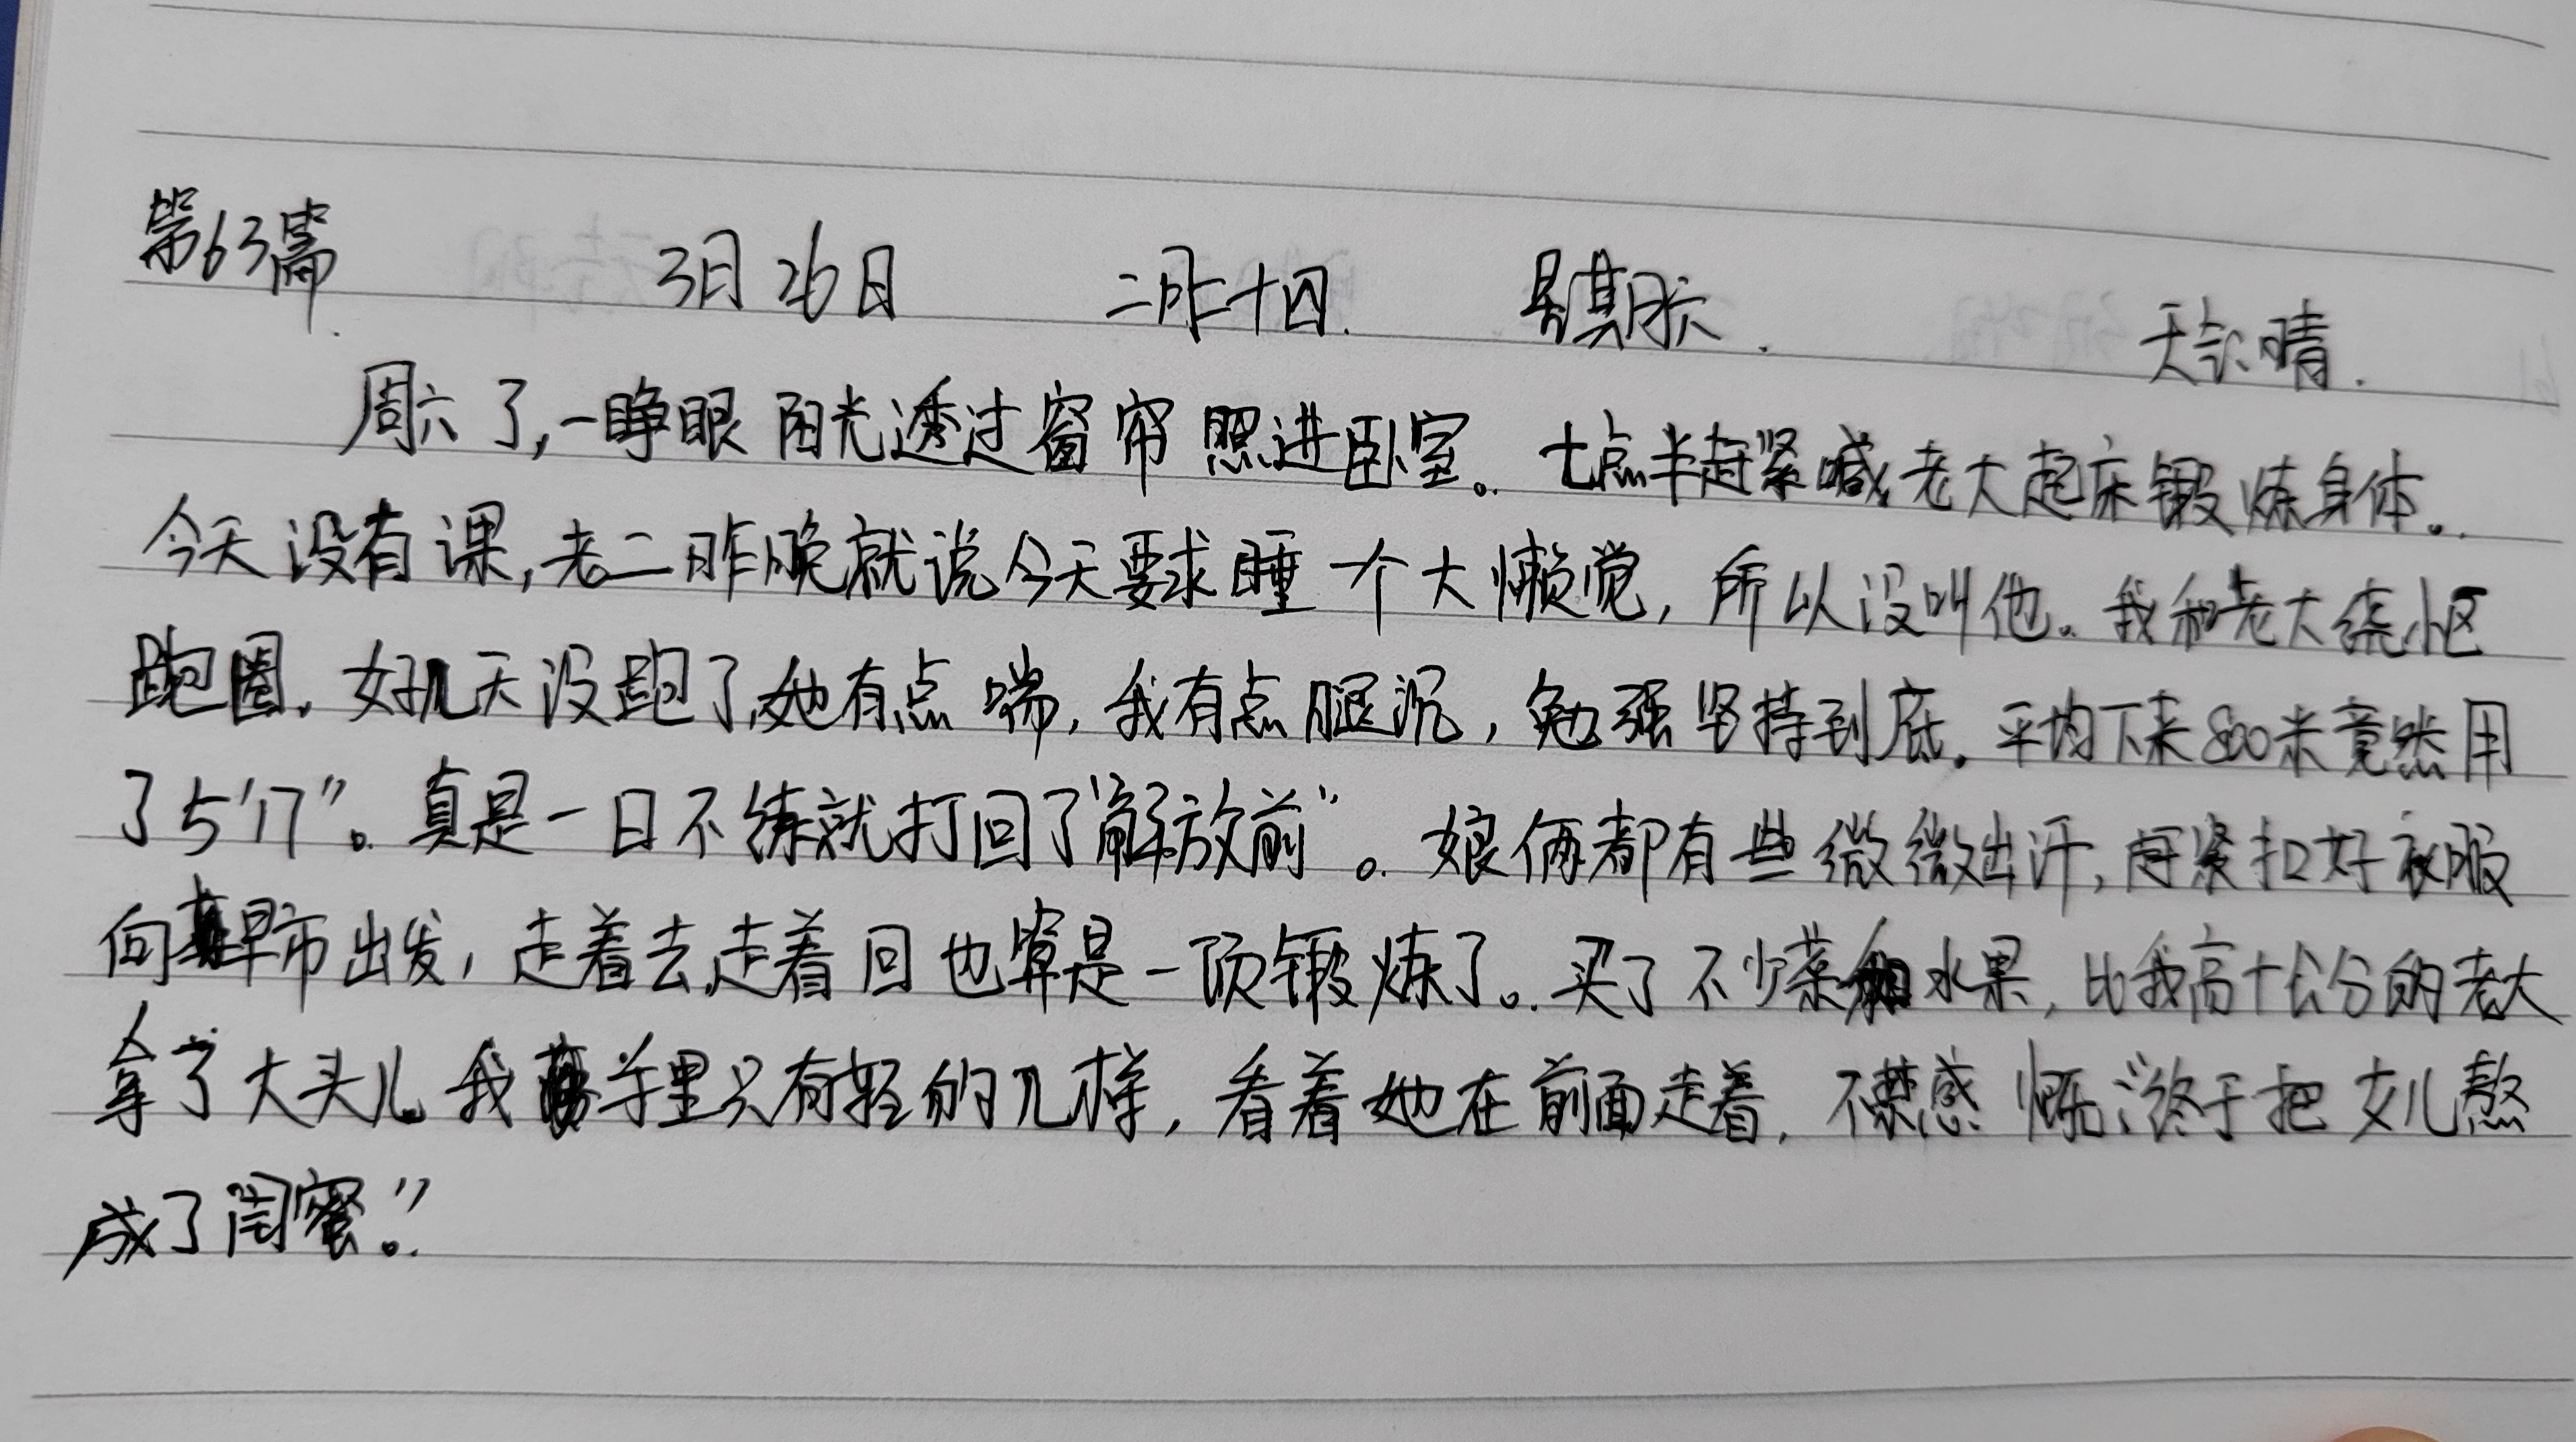 第63篇 3月26日 二月二十四. 星期六. 天气晴.
周六了,一睁眼阳光透过窗帘照进卧室。七点半赶紧喊老大起床锻炼身体。
今天没有课,老二昨晚就说今天要求睡一个大懒觉,所以没叫他。我和老大绕小区
跑圈,好几天没跑了,她有点喘,我有点腿沉,勉强坚持到底。平均下来800米竟然用
了5′17″。真是一日不练就打回了“解放前”。娘俩都有些微微出汗,赶紧扣好衣服
向早市出发,走着去,走着回也算是一项锻炼了。买了不少菜和水果,比我高十公分的老大
拿了大头儿,我手里只有轻的几样,看着她在前面走着,不禁感慨:“终于把女儿熬
成了闺蜜。”